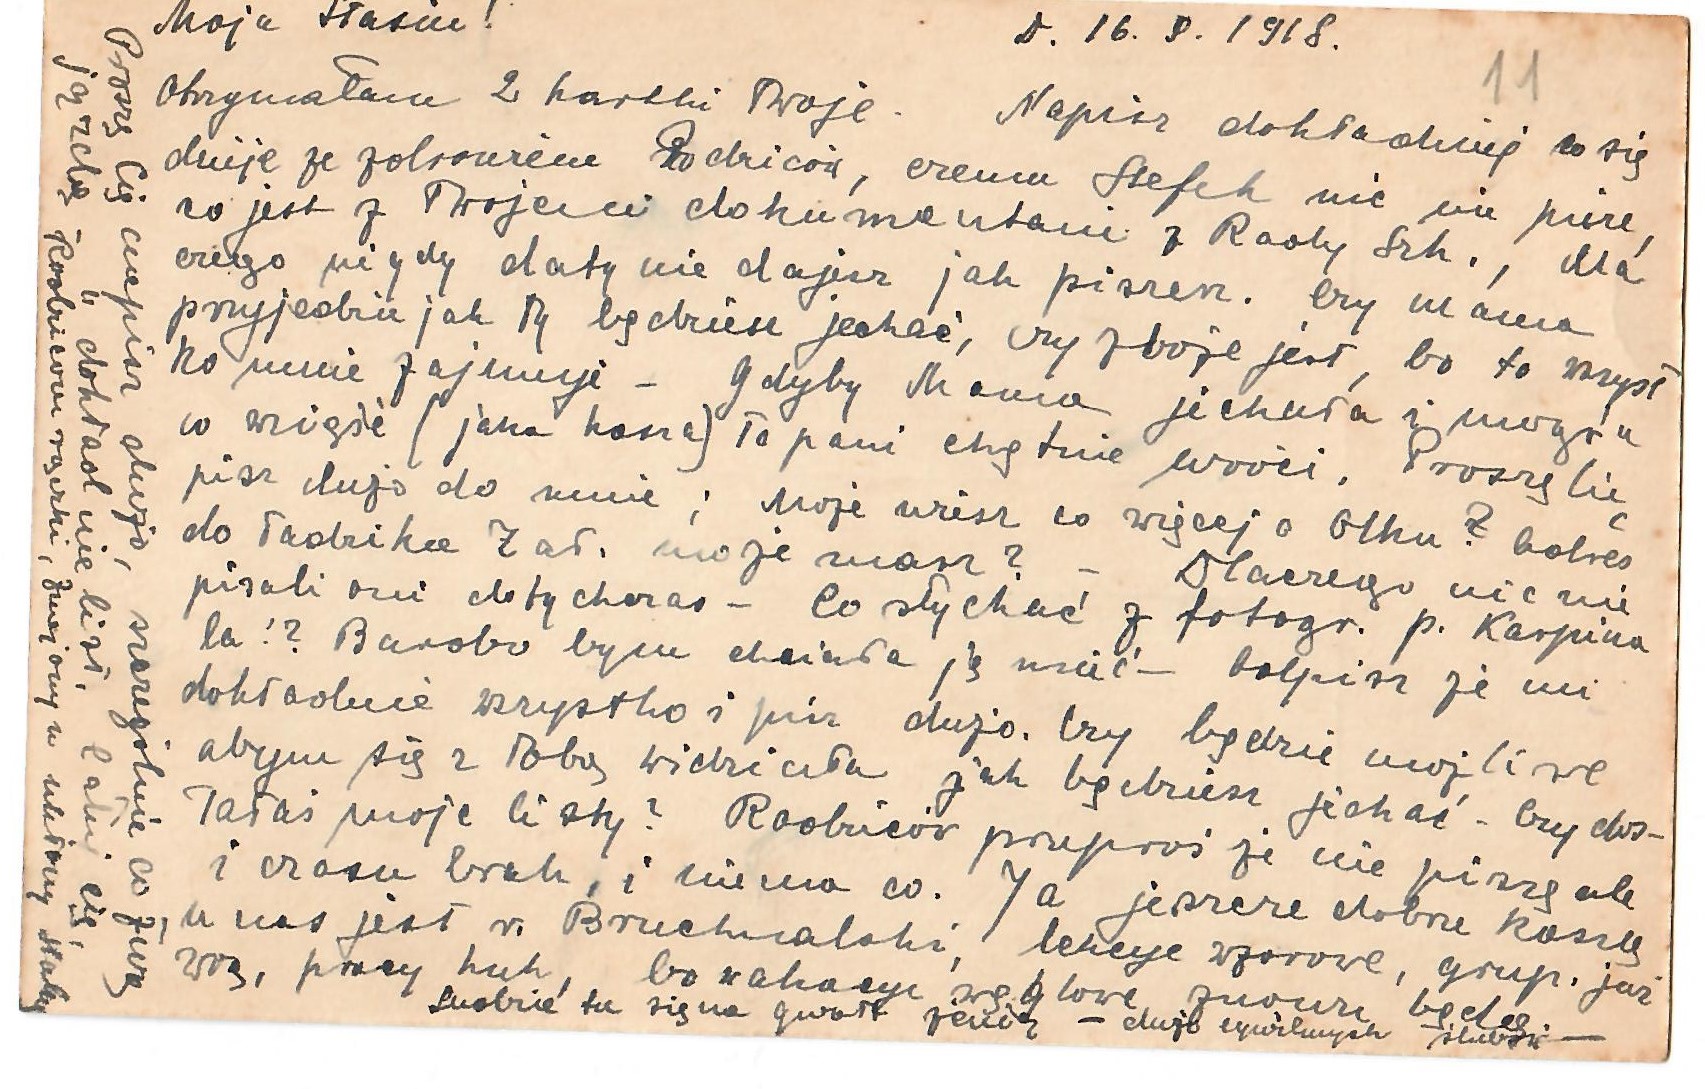 Moja Stasiu!
D. 16. X. 1918.
11
Otrzymałam 2 kartki Twoje. Napisz dokładniej co się
dzieje ze zdrowiem Rodziców, czemu Stefek nic nie pisze,
co jest z Twojemi dokumentami z Rady Szk., dla
czego nigdy daty nie dajesz jak piszesz. Czy mama
przyjedzie jak Ty będziesz jechać, czy zboże jest, bo to wszyst
ko mnie zajmuje – Gdyby Mama jechała i mogła
co wziąść (jaka kasza) to pani chętnie wróci. Proszę Cię
pisz dużo do mnie; Może wiesz co więcej o Olku? Adres
do Tadzika Zał. może masz? – Dlaczego nic nie
pisali oni dotychczas – Co słychać z fotogr. p. Karpina
la!? Bardzo bym chciała ją mieć – Odpisz że mi
dokładnie wszystko i pisz dużo. Czy będzie możliwe
abym się z Tobą widziała jak będziesz jechać – Czy dos-
tałaś moje listy? Rodziców przeproś że nie piszę ale
i czasu brak, i niema co. Ja jeszcze dobrze kaszlę
u nas jest r. Bruchnalski, lekcye wzorowe, grup. już
są, pracy huk, bo wakacye węglowe znowu będą –
Ludzie tu się na gwałt żenią – dużo cywilnych ślubów –
Proszę Cię napisz dużo, szczególnie co
ja zdrowie dokładnie list. Całuję Cię,
Rodziców rączki,